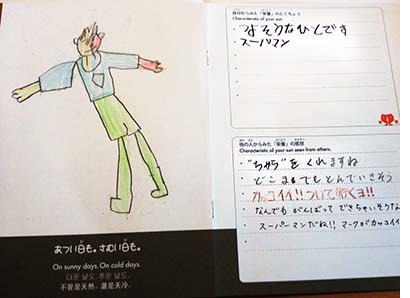 自分からみた「栄養」のとくちょう
Characteristic of your sun
・つよそうなひとです
・スーパマン
他の人からみた「栄養」の感想
Characteristic of your sun seen from others.
・"ちから"をくれますね
・どこまでもとんでいきそう
・カッコイイ!! ついて行くヨ!!
・なんでもがんばってできちゃいそうな
・スーパーマンだね!! マークがカッコイイ
あつい日も。さむい日も。
On sunny days. On cold days.
더운 날도. 추운 날도.
不管是天熱，還是天冷．